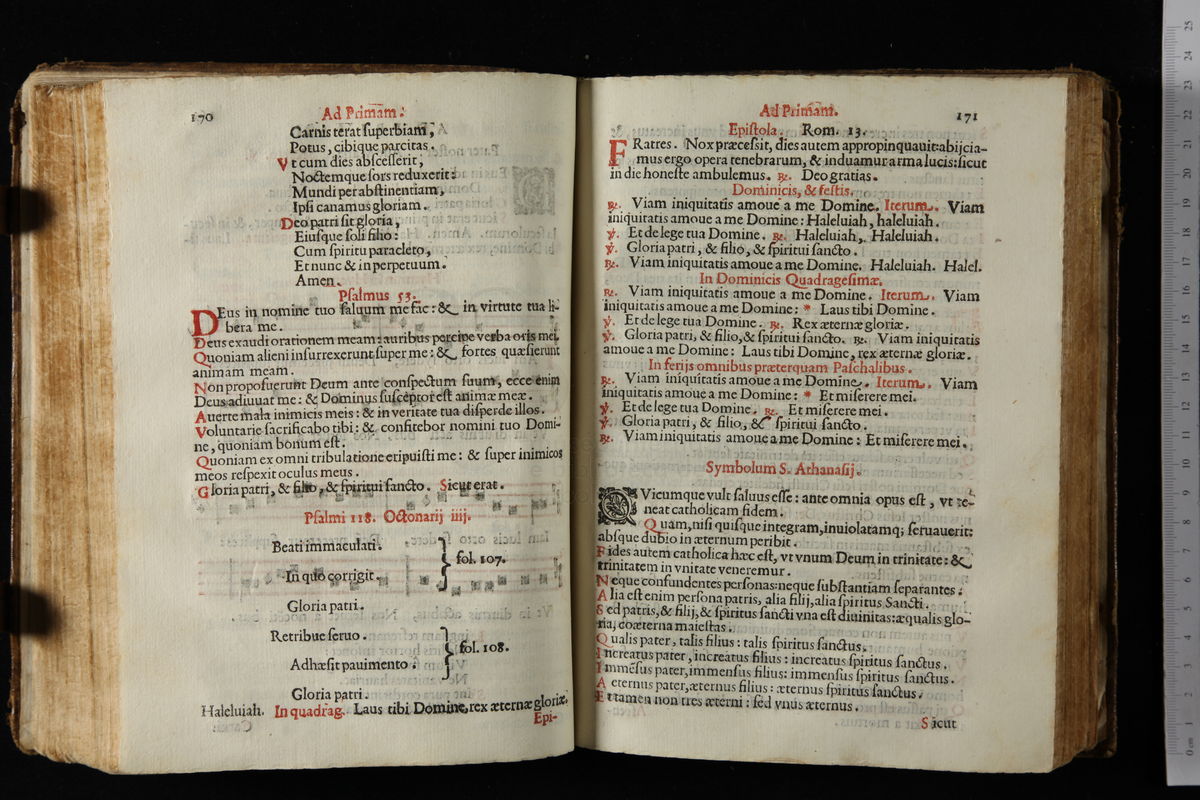 170
Ad Primam.
Carnis terat ſuperbiam,
Potus, cibique parcitas.
Vt cum dies abſceſſerit,
Noctemque ſors reduxerit:
Mundi per abſtinentiam,
Ipſi canamus gloriam.
Deo patri ſit gloria,
Eiuſque ſoli filio:
Cum ſpiritu paracleto,
Et nunc & in perpetuum.
Amen.
Pſalmus 53.
DEus in nomine tuo ſaluum me fac: & in virtute tua li-
bera me.
Deus exaudi orationem meam: auribus percipe verba oris mei.
Quoniam alieni inſurrexerunt ſuper me: & fortes quæſierunt
animam meam.
Non propoſuerunt Deum ante conſpectum ſuum, ecce enim
Deus adiuuat me: & Dominus ſuſceptor eſt animæ meæ.
Auerte mala inimicis meis: & in veritate tua diſperde illos.
Voluntarie ſacrificabo tibi: & confitebor nomini tuo Domi-
ne, quoniam bonum eſt.
Quoniam ex omni tribulatione eripuiſti me: & ſuper inimicos
meos reſpexit oculus meus.
Gloria patri, & filio, & ſpiritui ſancto. Sicut erat.
Pſalmi 118. Octonarij iiij.
Beati immaculati.
fol. 107.
In quo corrigit.
Gloria patri.
Retribue ſeruo.
fol. 108.
Adhæſit pauimento.
Gloria patri.
Haleluiah. In quadrag. Laus tibi Domine, rex æternæ gloriæ.
Epi-
Ad Primam.
171
Epiſtola. Rom. 13.
FRatres. Nox præceſſit, dies autem appropinquauit: abijcia-
mus ergo opera tenebrarum, & induamur arma lucis: ſicut
in die honeſte ambulemus. ℟. Deo gratias.
Dominicis, & feſtis.
℟. Viam iniquitatis amoue a me Domine. Iterum. Viam
iniquitatis amoue a me Domine: Haleluiah, haleluiah.
℣. Et de lege tua Domine. ℟. Haleluiah, Haleluiah.
℣. Gloria patri, & filio, & ſpiritui ſancto.
℟. Viam iniquitatis amoue a me Domine. Haleluiah. Halel.
In Dominicis Quadrageſimæ.
℟. Viam iniquitatis amoue a me Domine. Iterum. Viam
iniquitatis amoue a me Domine: * Laus tibi Domine.
℣. Et de lege tua Domine. ℟. Rex æternæ gloriæ.
℣. Gloria patri, & filio, & ſpiritui ſancto. ℟. Viam iniquitatis
amoue a me Domine: Laus tibi Domine, rex æternæ gloriæ.
In ferijs omnibus præterquam Paſchalibus.
℟. Viam iniquitatis amoue a me Domine. Iterum. Viam
iniquitatis amoue a me Domine: * Et miſerere mei.
℣. Et de lege tua Domine. ℟. Et miſerere mei.
℣. Gloria patri, & filio, & ſpiritui ſancto.
℟. Viam iniquitatis amoue a me Domine: Et miſerere mei.
Symbolum S. Athanaſij.
QVicumque vult ſaluus eſſe: ante omnia opus eſt, vt te-
neat catholicam fidem.
Quam, niſi quiſque integram, inuiolatamq; ſeruauerit:
abſque dubio in æternum peribit.
Fides autem catholica hæc eſt, vt vnum Deum in trinitate: &
trinitatem in vnitate veneremur.
Neque confundentes perſonas: neque ſubſtantiam ſeparantes.
Alia eſt enim perſona patris, alia filij, alia ſpiritus Sancti.
Sed patris, & filij, & ſpiritus ſancti vna eſt diuinitas: æqualis glo-
ria, coæterna maieſtas.
Qualis pater, talis filius: talis ſpiritus ſanctus.
Increatus pater, increatus filius: increatus ſpiritus ſanctus.
Immēſus pater, immenſus filius: immenſus ſpiritus ſanctus.
Aeternus pater, æternus filius: æternus ſpiritus ſanctus.
Et tamen non tres æterni: ſed vnus æternus.
Sicut